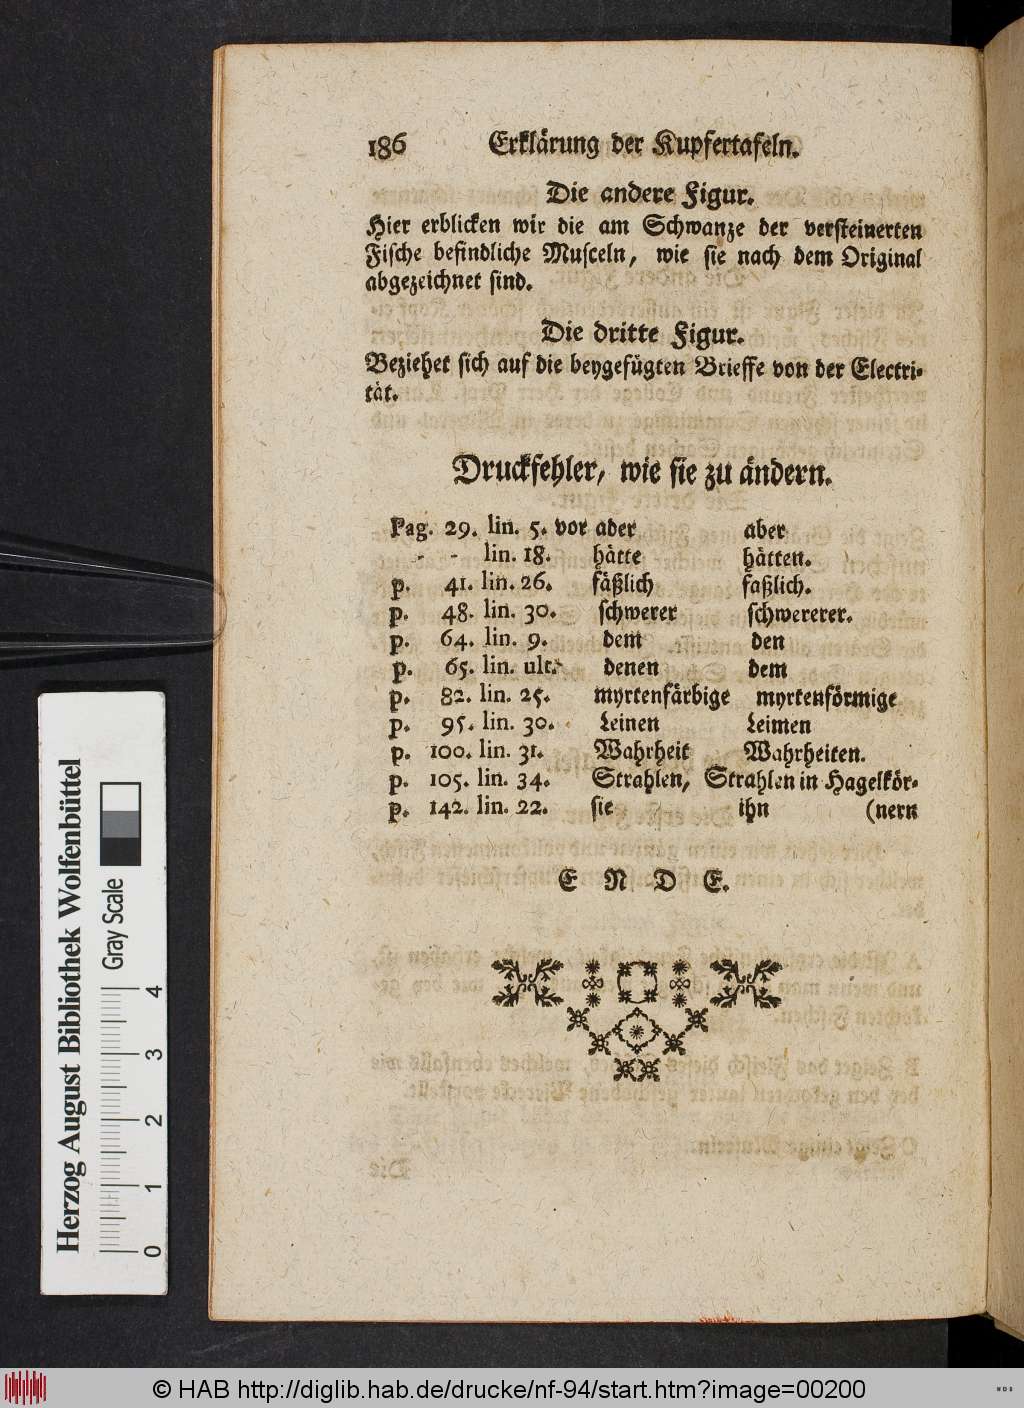 186 Erklärung der Kupfertafeln.
Die andere Figur.
Hier erblicken wir die am Schwanze der versteinerten
Fische befindliche Musceln, wie sie nach dem Original
abgezeichnet sind.
Die dritte Figur.
Beziehet sich auf die beygefügten Brieffe von der Electri-
tät.
Druckfehler, wie sie zu ändern.
Pag. 29. lin. 5. vor ader aber
- - lin. 18. hätte hätten.
p. 41. lin. 26. fäßlich faßlich.
p. 48. lin. 30. schwerer schwererer.
p. 64. lin. 9. dem den
p. 65. lin. ult. denen dem
p. 82. lin. 25. myrtenfärbige myrtenförmige
p. 95. lin. 30. Leinen Leimen
p. 100. lin. 31. Wahrheit Wahrheiten.
p. 105. lin. 34. Strahlen, Strahlen in Hagelkör-
p. 142. lin. 22. sie ihn (nern
E N D E.
Herzog August Bibliothek Wolfenbüttel
Gray Scale
0 1 2 3 4
© HAB http://diglib.hab.de/drucke/nf-94/start.htm?image=00200